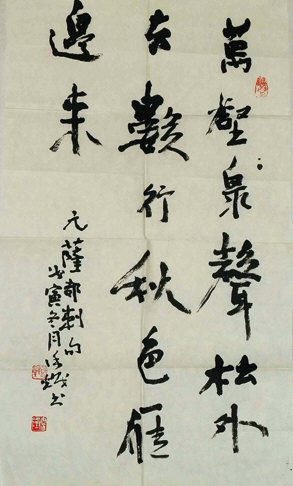 萬壑泉聲松外
去數行秋色雁
邊來
元薩都剌句
戊寅冬月